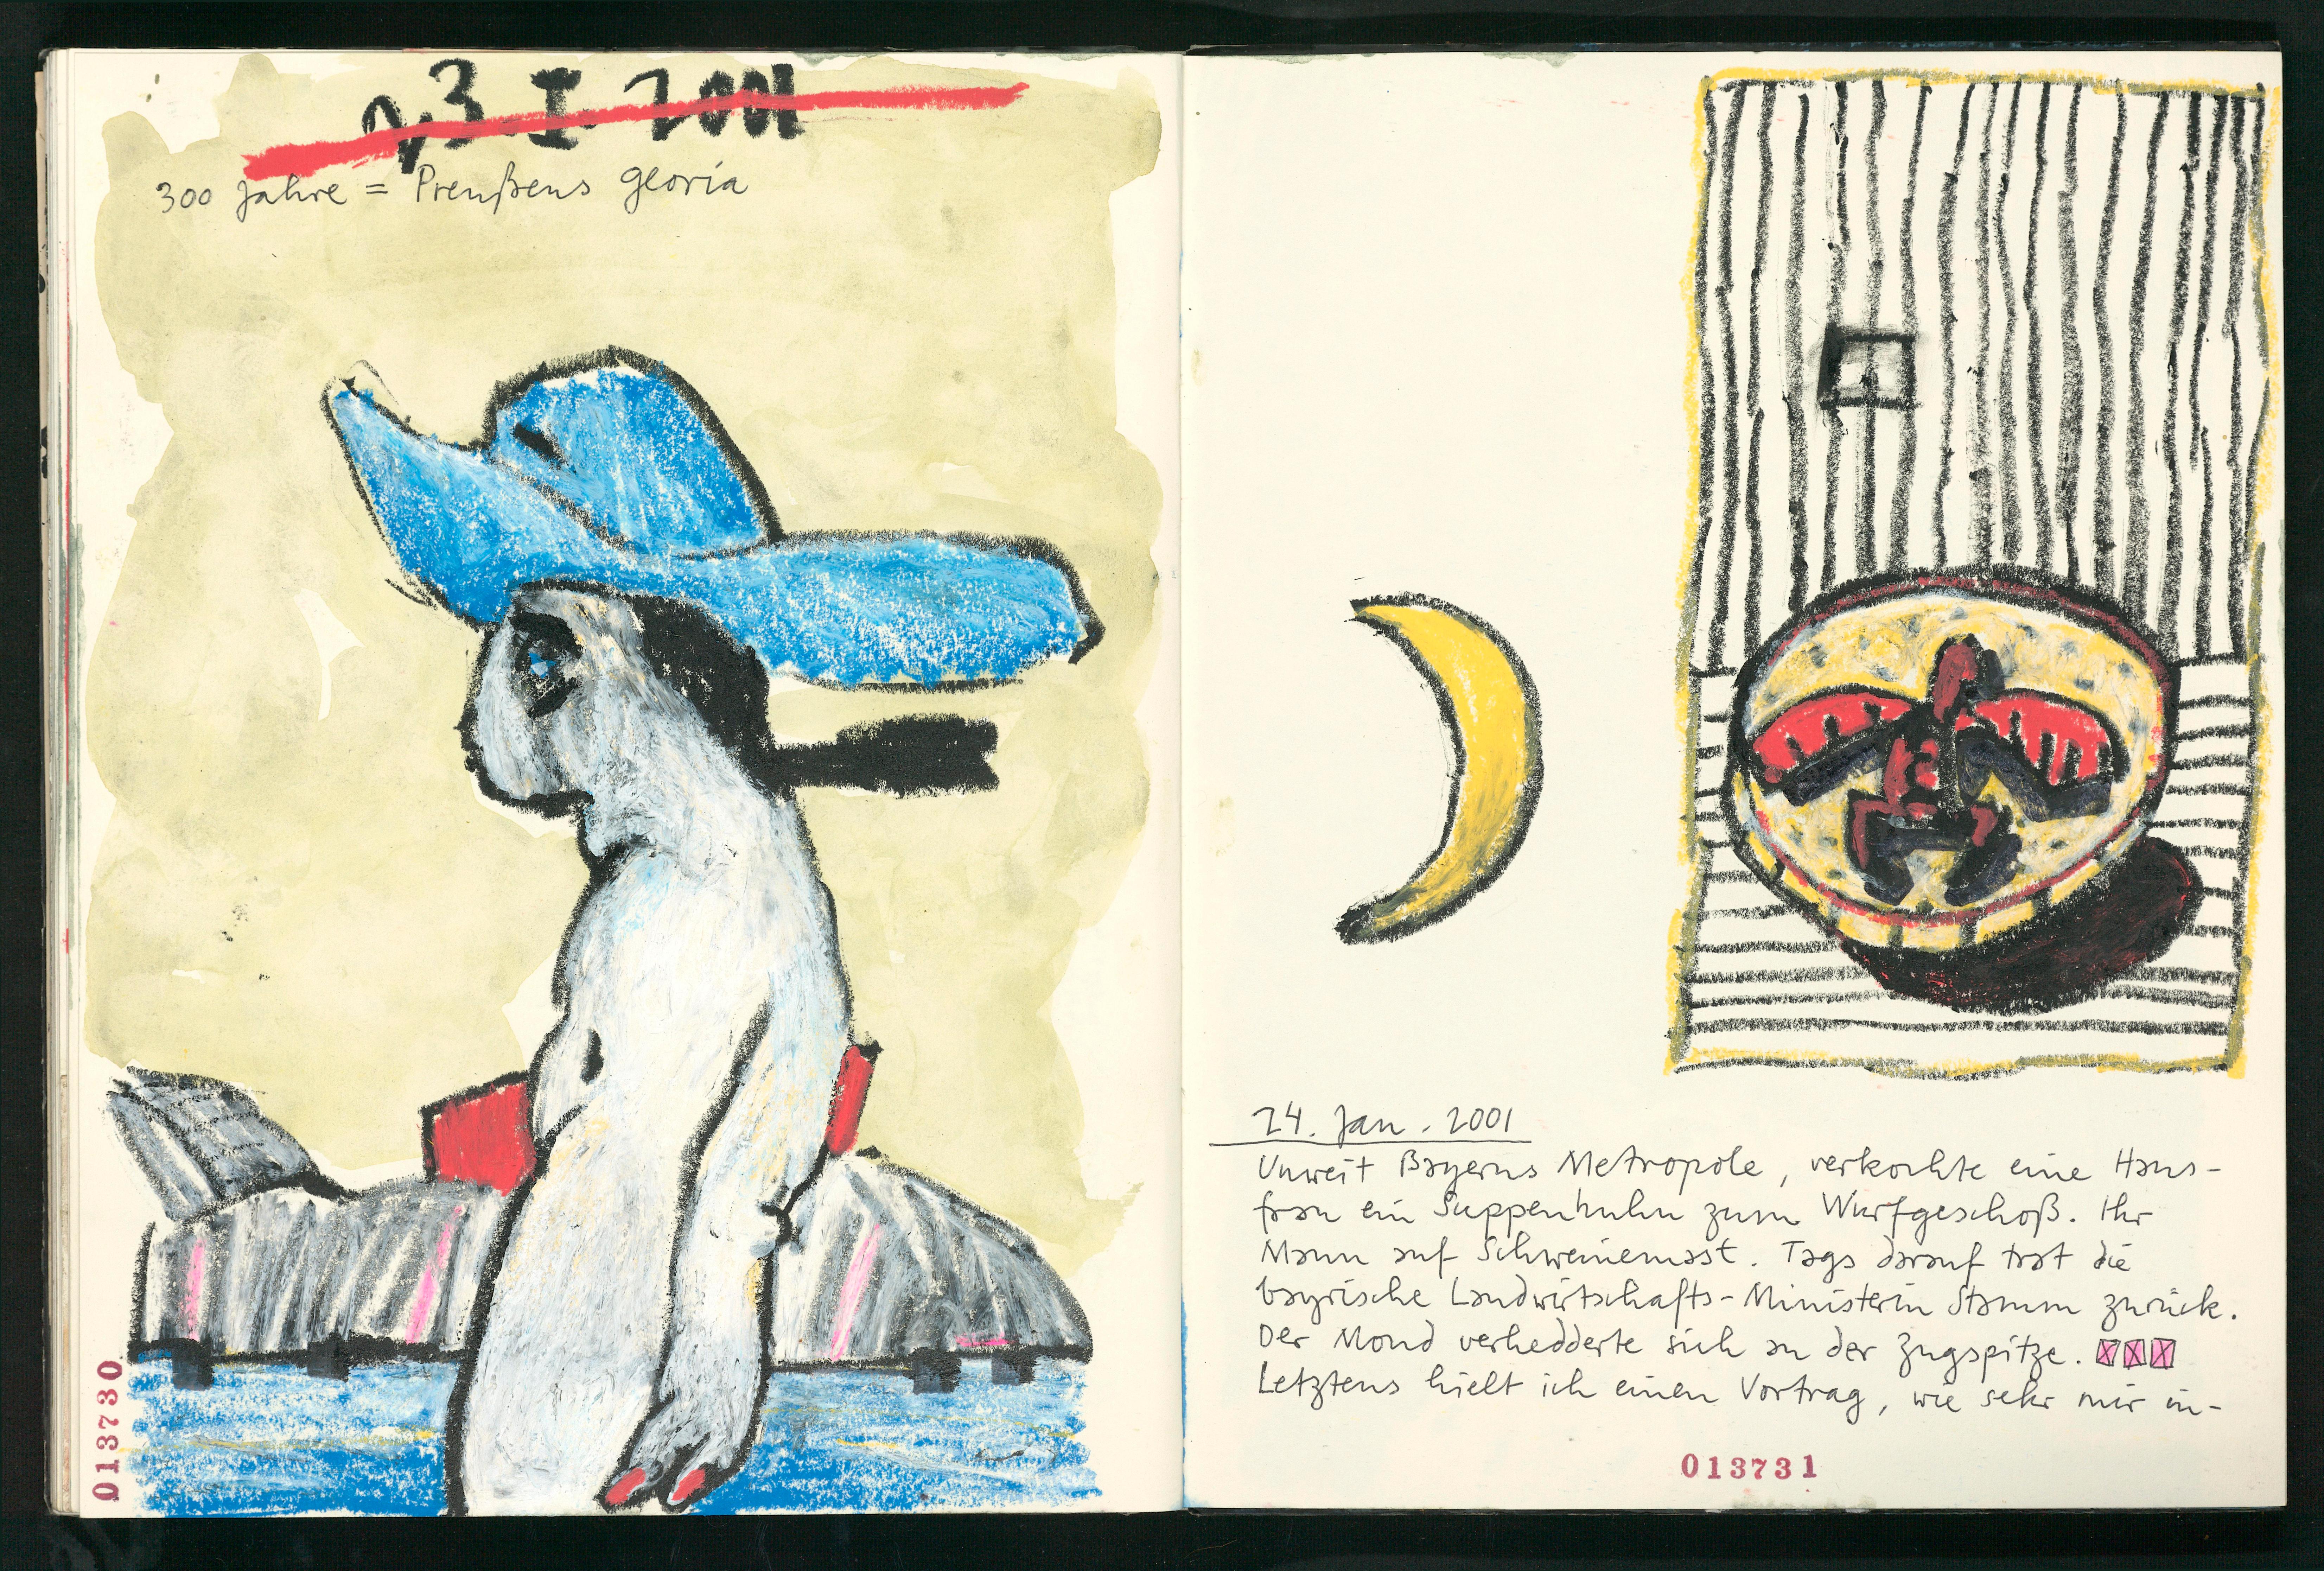 23. I. 2001
300 Jahre = Preußens gloria
013730
24. Jan. 2001
Unweit Bayerns Metropole, verkochte eine Haus-
frau ein Suppenhuhn zum Wurfgeschoß. Ihr
Mann auf Schweinemast. Tags darauf trat die
bayrische Landwirtschafts-Ministerin Stamm zurück.
Der Mond verhedderte sich an der Zugspitze.
Letztens hielt ich einen Vortrag, wie sehr mir in-
013731